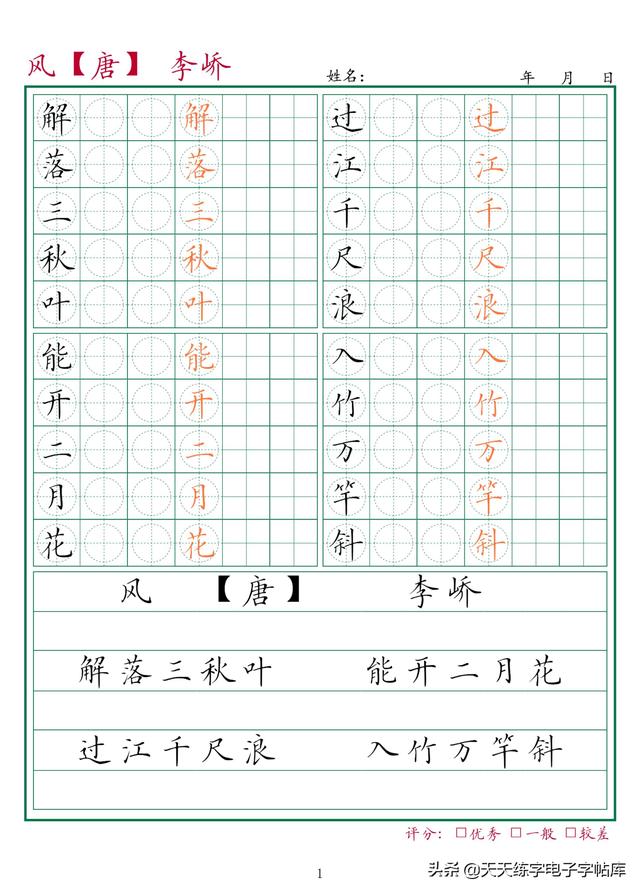 风【唐】 李峤
姓名： 年 月 日
解 解 过 过
落 落 江 江
三 三 千 千
秋 秋 尺 尺
叶 叶 浪 浪
能 能 入 入
开 开 竹 竹
二 二 万 万
月 月 竿 竿
花 花 斜 斜
风 【唐】 李峤
解落三秋叶 能开二月花
过江千尺浪 入竹万竿斜
评分：□优秀 □一般 □较差
1
头条@天天练字电子字帖库